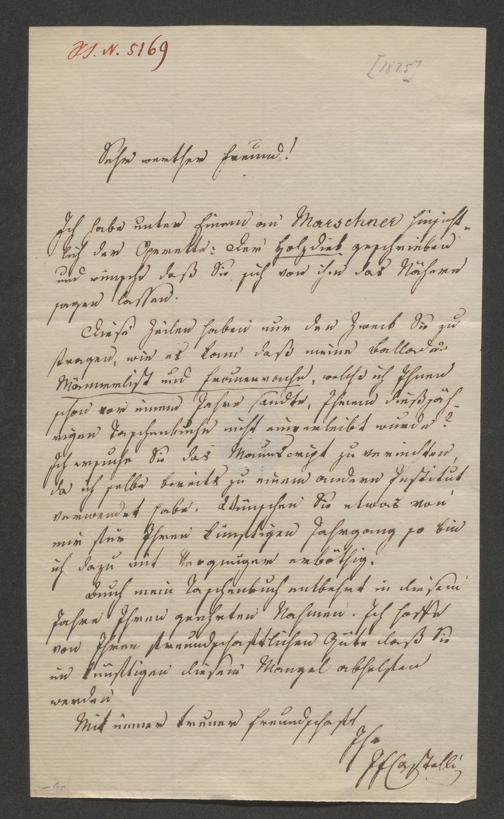 H. I. N. 5169
[1825]
Sehr werther Freund!
Ich habe unter Einem an Marschner hinsicht-
lich der Operette: Der Holzdieb geschrieben
und wünsche daß Sie sich von ihm das Nähere
sagen lassen.
Diese Zeilen haben nur den Zweck Sie zu
fragen, wie es kam daß meine Ballade:
Männerlist und Frauenrache, welche ich Ihnen
schon vor einem Jahre sandte, Ihrem dießjäh-
rigen Taschenbuche nicht einverleibt wurde?
Ich ersuche Sie das Manuscript zu vernichten,
da ich selbe bereits zu einem andern Institut
verwendet habe. Wünschen Sie etwas von
mir für Ihren künftigen Jahrgang so bin
ich dazu mit Vergnügen erböthig.
Auch mein Taschenbuch entbehrt in diesem
Jahre Ihren geehrten Nahmen. Ich hoffe
von Ihrer freundschaftlichen Güte daß Sie
im künftigen diesem Mangel abhelfen
werden
Mit immer treuer Freundschaft
Ihr
IFCastelli